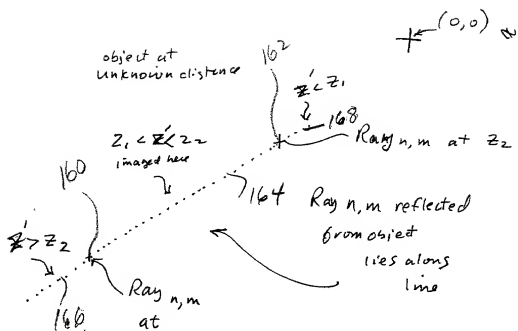 (0,0)
object at
unknown distance
162
z' < z₁
168
Ray n,m at z₂
z₁ < z' < z₂
imaged here
160
164
Ray n,m reflected
from object
lies along
line
z' > z₂
166
Ray n,m
at